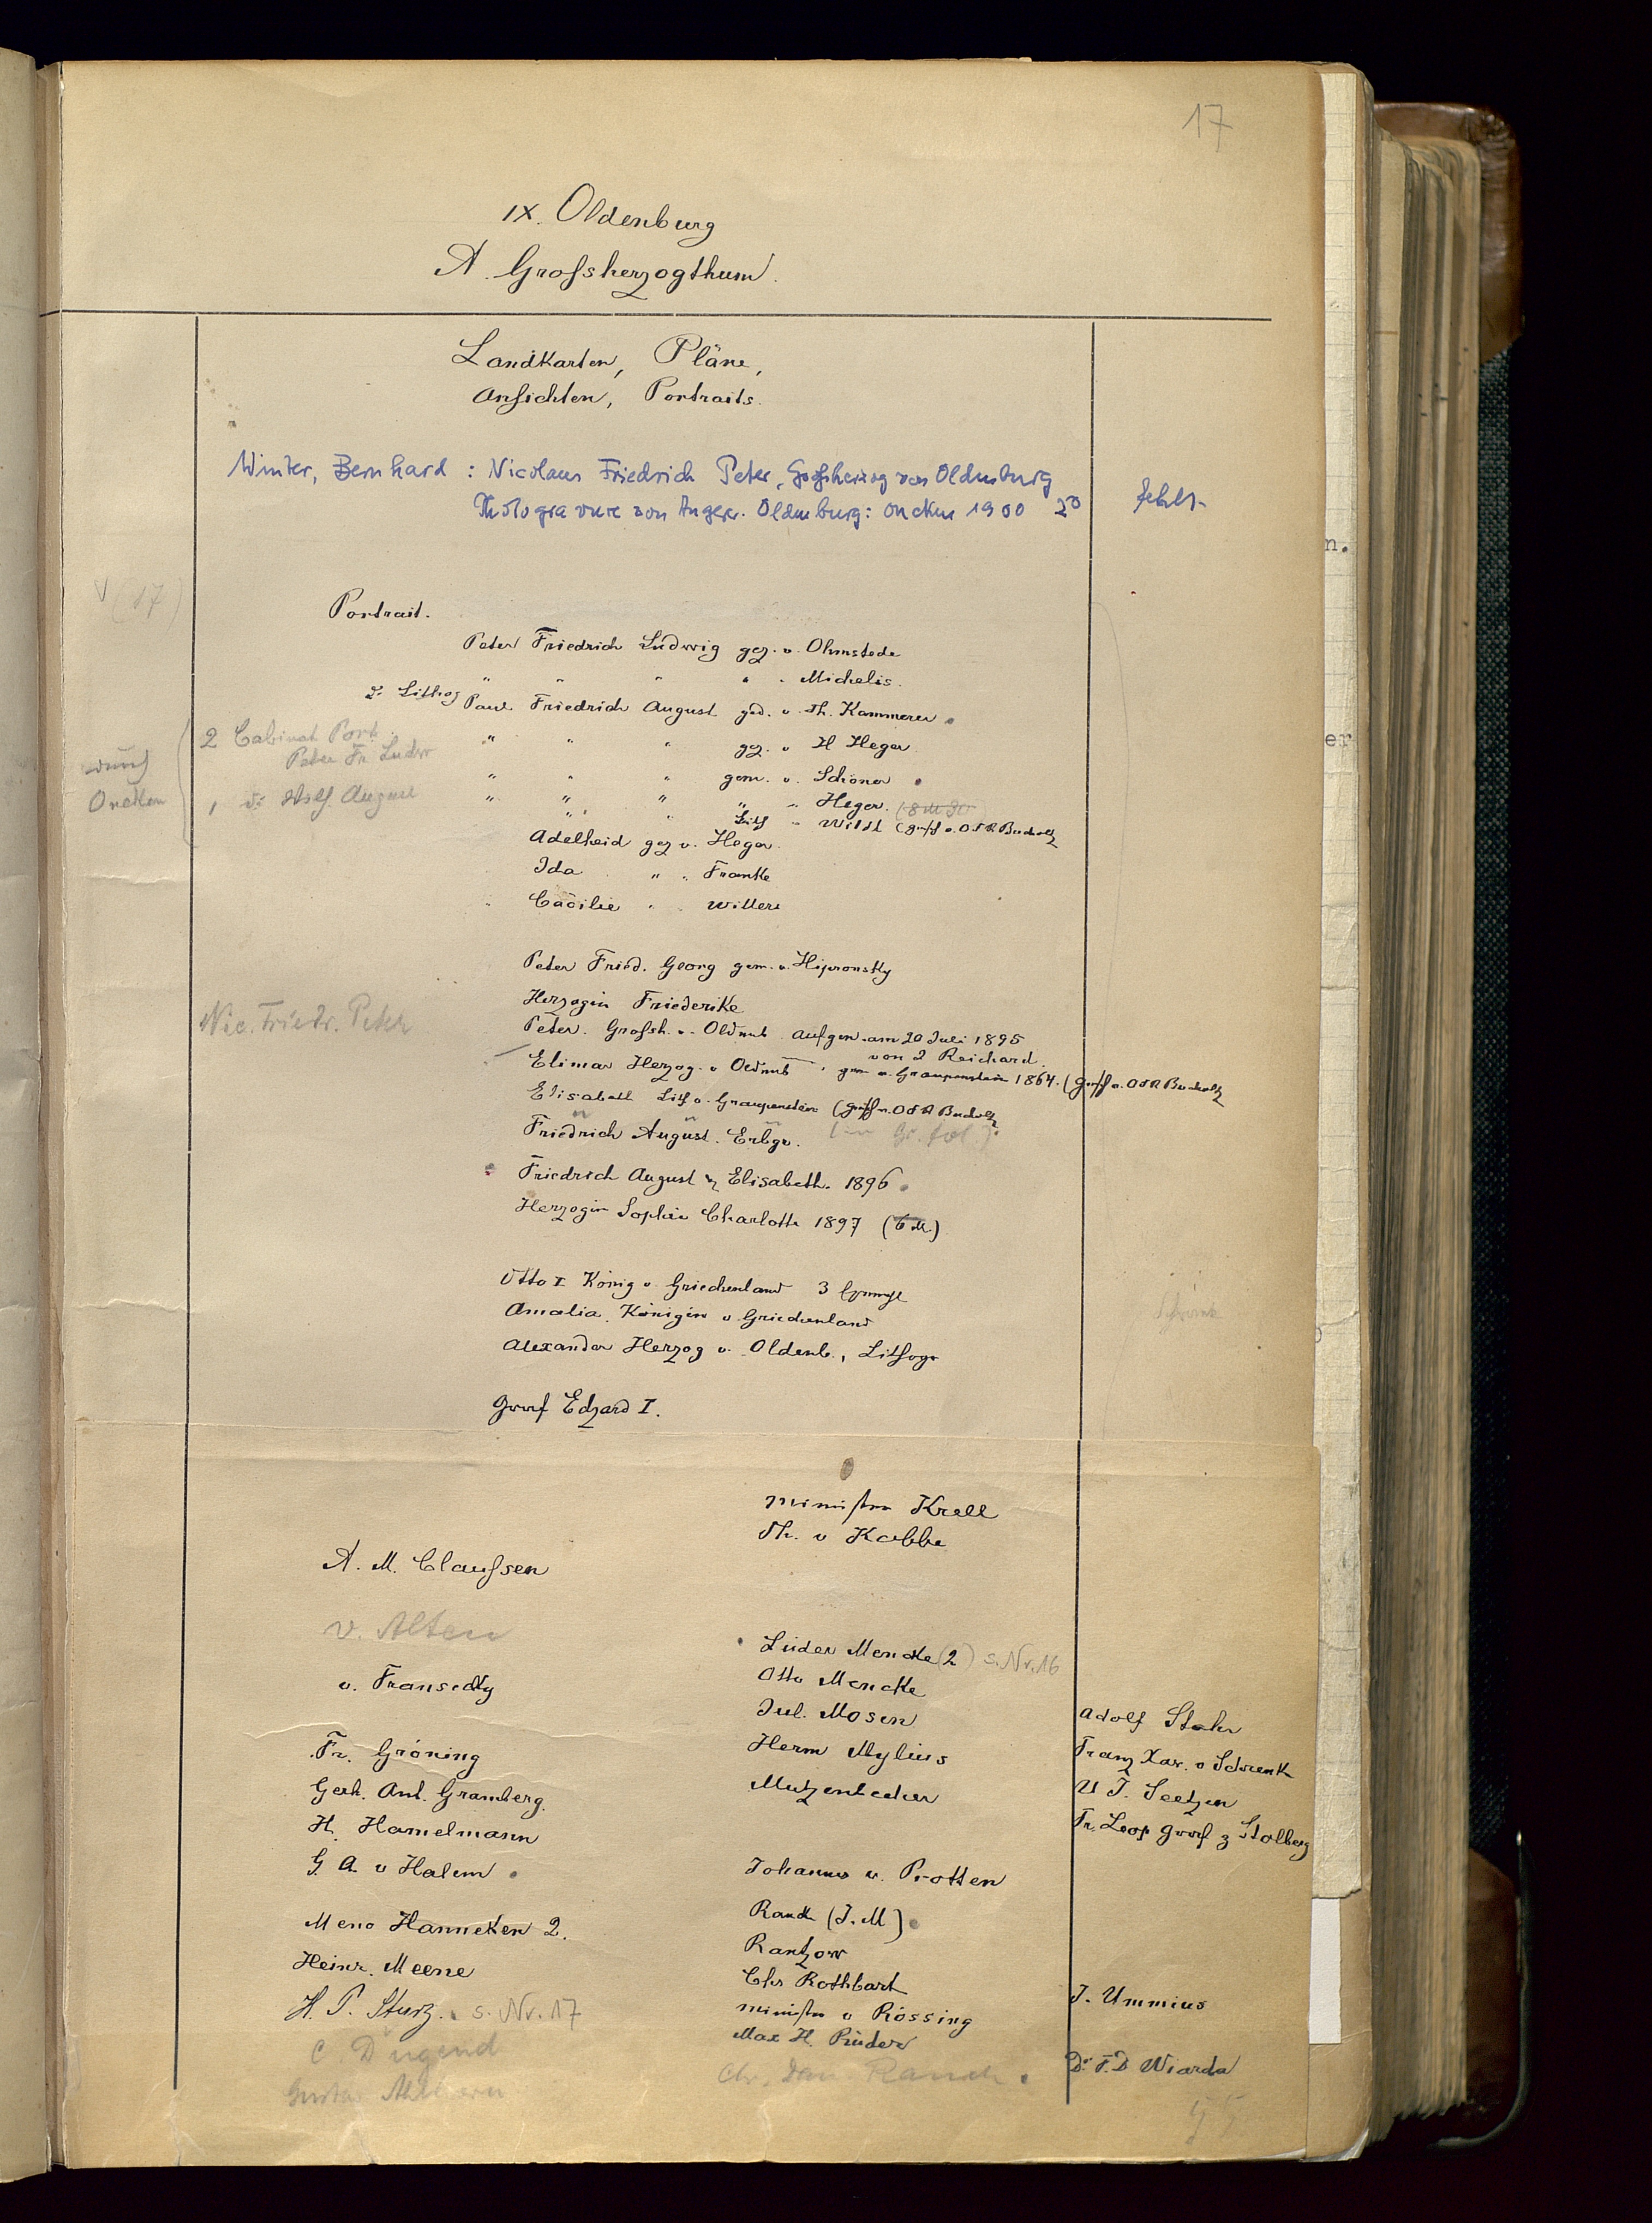 17
IX. Oldenburg
A. Grofsherzogthum.
Landkarten, Pläne,
Ansichten, Portraits.
Winter, Bernhard: Nicolaus Friedrich Peter, Großherzog von Oldenburg
Photogravure von Oldenburg: Oncken 1900 2°
fehlt
(17)
Portrait.
Peter Friedrich Ludwig gez. v. Ohmstede
" " " " " Michelis.
2 Lithog Paul Friedrich August ged. v. Th. Kammerer
2 Cabinet Port.
" " " gez. v H Heger
Peter Fr Ludw
durch
Oncken
" " " gem. v. Schöner
1 do August
" " " " " Heger.
" " Lith " Wildt (Gesch v. OKR Bucholtz
Adelheid gez v. Heger.
Ida " " Franke
Cäcilie " " Willers
Peter Fried. Georg gem. v. Kiprensky
Herzogin Friederike
Nic. Friedr. Peter
Peter. Grofsh. v. Oldenb. Aufgen. am 20 Juli 1895
von J Reichard.
Elimar Herzog v Oldenb gem v. Graupenstein 1864. (Gesch v. OKR Bucholtz
Elisabeth Lith v. Graupenstein (Gesch v. OKR Bucholtz
Friedrich August. Erbgr. (in Gr. fol.)
Friedrich August u Elisabeth. 1896
Herzogin Sophie Charlotte 1897 (6 M.)
Otto I König v. Griechenland 3
Amalia. Königin v Griechenland
Alexander Herzog v. Oldenb., Lithogr
Graf Edzard I.
Minister Krell
Th. v Kobbe
A. M. Claufsen
v. Alten
Lüder Mencke (2) s. Nr. 16
v. Fransecky
Otto Mencke
Jul. Mosen
Adolf Stahr
Fr. Gröning
Herm Mylius
Franz Xav. v Schrenk
Gerh. Ant. Gramberg.
Mutzenbecher
U J. Seetzen
H. Hamelmann
Fr. Leop Graf z Stolberg
G. A. v Halem
Johannes v. Protten
Meno Hanneken 2.
Rauch (J. M)
Rantzow
Heinr. Meene
Chr Rothbart
H. P. Sturz. s. Nr. 17
Minister v Rössing
J. Ummius
C. Dugend
Max H. Rüder
Dr. T. D Wiarda
Chr. Dan. Rauch
55